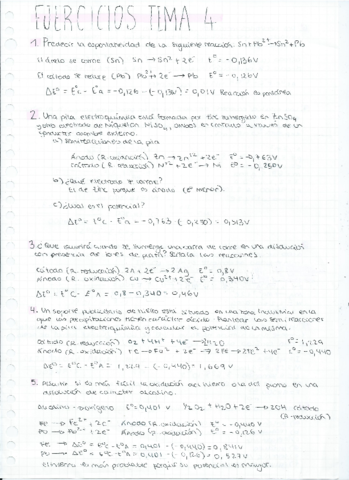 EJERCICIOS TEMA 4
1. Predecir la espontaneidad de la siguiente reacción: Sn+Pb²⁺→Sn²⁺+Pb
El ánodo se corroe (Sn) Sn → Sn²⁺+2e⁻ E° = -0,136V
El cátodo se reduce (Pb) Pb²⁺+2e⁻ → Pb E° = -0,126V
ΔE° = E°c - E°a = -0,126 - (-0,136) = 0,01V Reacción espontánea
2. Una pila electroquímica está formada por Zn sumergido en ZnSO₄
y otro electrodo de níquel en NiSO₄, ambos en circuito a través de un
conductor externo.
a) Semirreacciones de la pila
Ánodo (R. oxidación) Zn → Zn²⁺ + 2e⁻ E° = -0,763V
Cátodo (R. reducción) Ni²⁺ + 2e⁻ → Ni E° = -0,250V
b) ¿Qué electrodo se corroe?
El de Zn porque es ánodo (E° menor).
c) ¿Cuál es el potencial?
ΔE° = E°c - E°a = -0,763 - (-0,250) = 0,513V
3. ¿Qué ocurrirá cuando se sumerge una barra de cobre en una disolución
con presencia de iones de plata? Señala las reacciones.
Cátodo (R. reducción) 2Ag + 2e⁻ → 2Ag E° = 0,8V
Ánodo (R. oxidación) Cu → Cu²⁺+2e⁻ E° = 0,340V
ΔE° = E°c - E°a = 0,8 - 0,340 = 0,46V
4. Un soporte publicitario de hierro está situado en una zona industrial en la
que las precipitaciones tienen carácter ácido. Plantear las semirreacciones
de la pila electroquímica y calcular el potencial de la misma.
Cátodo (R. reducción) O₂ + 4H⁺ + 4e⁻ → 2H₂O E° = 1,229
Ánodo (R. oxidación) Fe → Fe²⁺ + 2e⁻ → 2Fe → 2Fe²⁺ + 4e⁻ E° = -0,440
ΔE° = E°c - E°a = 1,229 - (-0,440) = 1,669V
5. Discutir si es más fácil la oxidación del hierro o la del plomo en una
disolución de carácter alcalino.
Alcalino - oxígeno E° = 0,401 V ½O₂ + H₂O + 2e → 2OH Cátodo
(R. reducción)
Fe → Fe²⁺ + 2e⁻ Ánodo (R. oxidación) E° = -0,440V
Pb → Pb²⁺ + 2e⁻ Ánodo (R. oxidación) E° = -0,126V
Fe → ΔE° = E°c - E°a = 0,401 - (-0,440) = 0,841V
Pb → ΔE° = E°c - E°a = 0,401 - (-0,126) = 0,527V
El hierro es más probable porque su potencial es mayor.